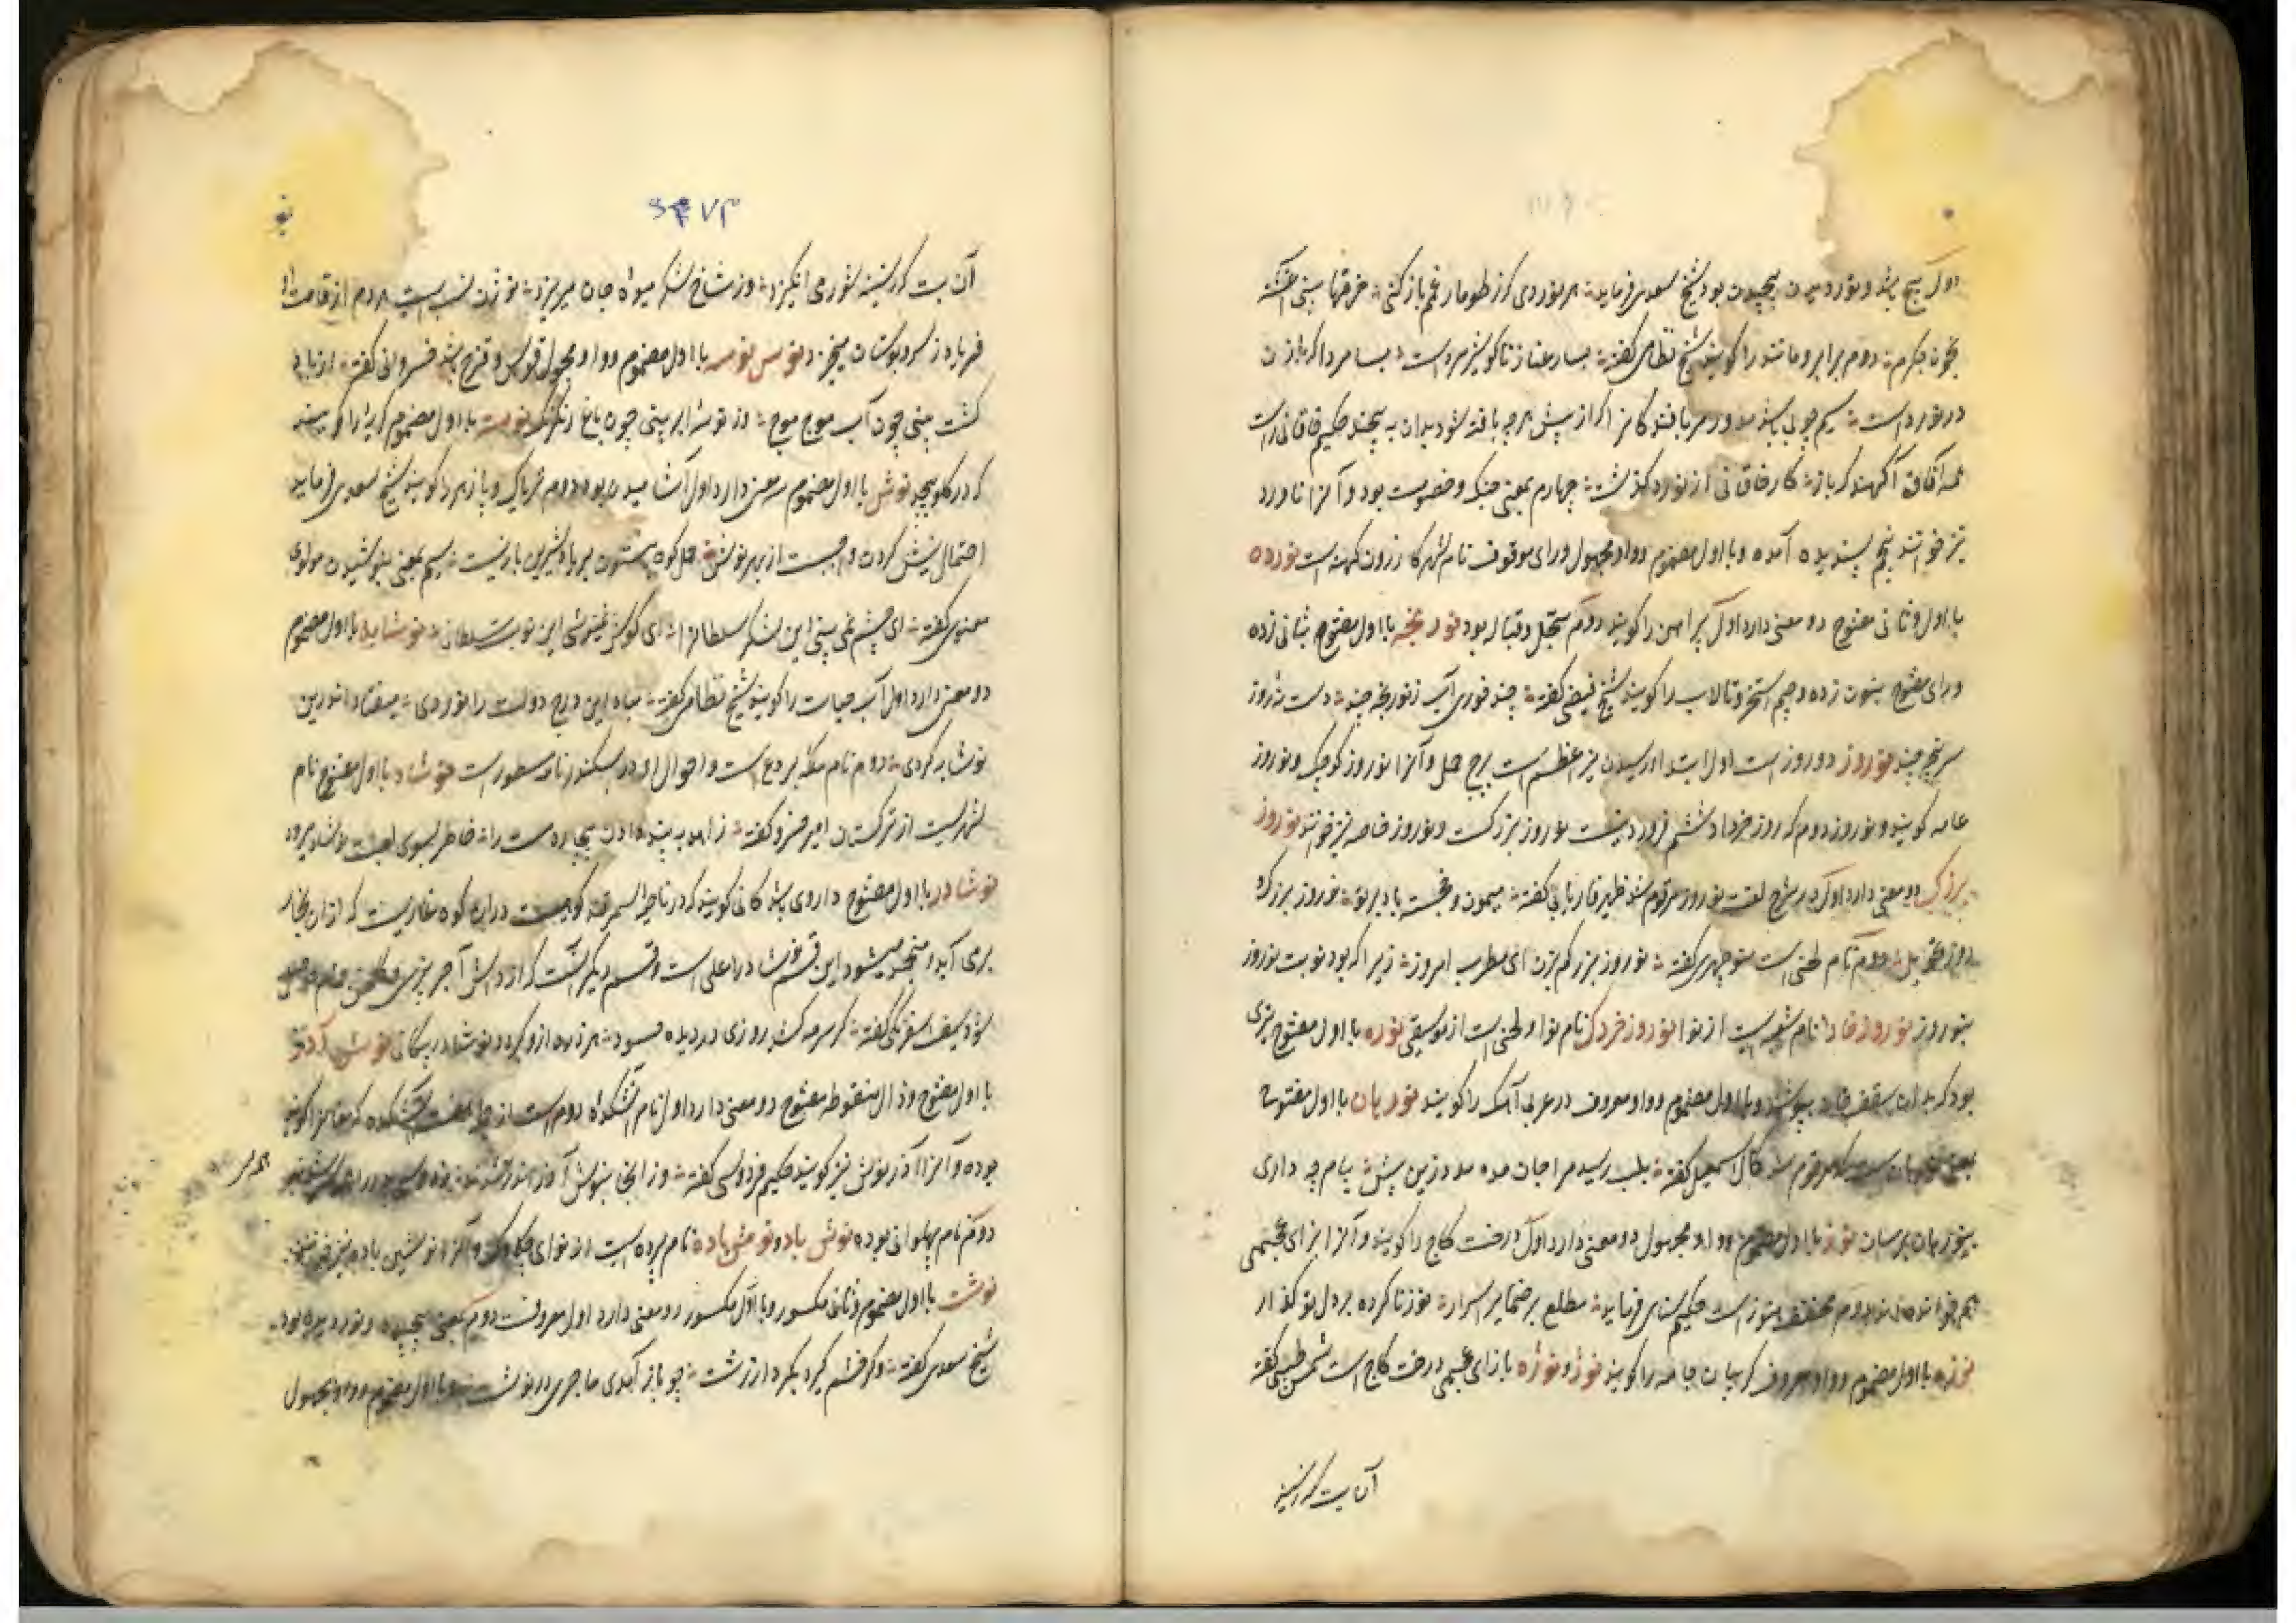 اول پیچ باشد و نوردیدن پیچیدن بود شیخ سعدی فرماید هر نوردی کز طومار غمم باز کنی حرفها بینی آغشته
بخون جگرم دوم برابر و مانند را گویند شیخ نظامی گفته بسا رعنا زنا کو شیر مرد است بسا مردا که از زن
در نورد است سیم چوبی باشد مدور مر بافندگانرا که از پیش هر چه بافته شود بدان به پیچند حکیم خاقانی راست
همه آفاق آگهند که باز کار خاقانی از نورد گذشت چهارم بمعنی جنگ و خصومت بود و آنرا ناورد
نیز خوانند پنجم پسندیده آمده و با اول مضموم و واو مجهول و رای موقوف نام شهر کازرون کهنه است نورده
با اول و ثانی مفتوح دو معنی دارد اول پیراهن را گویند دوم سجل و قباله بود نورنجه با اول مفتوح بثانی زده
و رای مفتوح بنون زده و جیم استخر و تالاب را گویند شیخ فیضی گفته چند خوری آب ز نورنجه چند دست ز روز
سر پنجه چند نوروز دو روز است اول ابتداء رسیدن نیر اعظم است ببرج حمل و آنرا نوروز کوچک و نوروز
عامه گویند و نوروز دوم که روز خرداد ششم فروردینست نوروز بزرگست و نوروز خاصه نیز خوانند نوروز
بزرگ دو معنی دارد اول در شرح لغت نوروز مرقوم شد ظهیر فاریابی گفته میمون و خجسته باد بر تو نوروز بزرگ
دوم نام لحنی است منوچهری گفته نوروز بزرگم بزن ای مطرب امروز زیرا که بود نوبت نوروز
بنوروز نوروز خارا نام شعبه ایست از نوا نوروز خردک نام نوا و لحنی است از موسیقی نوره با اول مفتوح چیزی
بود که بدان سقف خانه بپوشند و با اول مضموم و واو معروف در عربی آهک را گویند نورهان با اول مفتوح
مرقوم شد کمال اسمعیل گفته بلب رسید مرا جان مده مدد زین بیش پیام چه داری
بنورهان برسان نوز با اول مضموم و واو مجهول دو معنی دارد اول درخت کاج را گویند و آنرا بزای عجمی
هم خوانده اند دوم مخفف هنوز است حکیم سنائی فرماید مطلع بر ضمایر اسرار نوز ناکرده بر دل تو گذار
نوزه با اول مضموم و واو معروف گریبان جامه را گویند نوژ و نوژه با زای عجمی درخت کاج است شمس طبسی گفته
آن بت که ز سینه
۴۷۳
آن بت که ز سینه شور می انگیزد وز شاخ شکر میوه جان میریزد نوژن نسبت مردم از قامت او
فریاد ز سرو بوستان میخیزد نوس نوسه با اول مضموم و واو مجهول قوس و قزح باشد خسروانی گفته از باد
گشت بینی چون آب موج موج وز نوسه ابر بینی چون باغ رنگ رنگ نوسه با اول مضموم گریه را گویند
که در گلو پیچد نوش با اول مضموم سه معنی دارد اول آشامیدن بود دوم تریاک و پازهر را گویند شیخ سعدی فرماید
احتمال نیش کردن واجبست از بهر نوش حمل کوه بیستون بر یاد شیرین بار نیست سیم بمعنی بنیوشیدن مولوی
معنوی گفته ای چشم نمی بینی این لشکر سلطانرا ای گوش نمی نوشی این نوبت سلطانی نوشابه با اول مضموم
دو معنی دارد اول آب حیات را گویند شیخ نظامی گفته
نوشابه کردی دوم نام ملکه بردع است و احوال او در سکندرنامه مسطور است نوشاد با اول مفتوح نام
شهریست از ترکستان امیر خسرو گفته
نوشادر با اول مفتوح داروی باشد کانی گویند که در نواحی سمرقند کوهیست در آن کوه غاریست که از آن بخار
برمی آید و منجمد میشود این قسم نوشادر اعلی است و قسم دیگر آنست که از داش آجر پزی
شود سیف اسفرنگی گفته گر سرمه کشد روزی در دیده حسود هر ذره ازو گردد نوشادر پیکانی نوش آذر
با اول مفتوح و ذال منقوطه مفتوح دو معنی دارد اول نام آتشکده دوم است از جمله هفت آتشکده که مغانرا
بوده و آنرا آذر نوش نیز گویند حکیم فردوسی گفته وز آنجا بنوش آذر اندر شدند
دوم نام پهلوانی بوده نوش باد و نوش باده نام پرده ایست از نوای چکاوک و آنرا نوشین باده نیز خوانند
نوشت با اول مضموم و ثانی مکسور و با اول مکسور دو معنی دارد اول معروفست دوم بمعنی پیچیده و نوردیده بود
شیخ سعدی گفته وگر خشم گیرد بکردار زشت چو باز آمدی ماجری در نوشت و با اول مضموم و واو مجهول